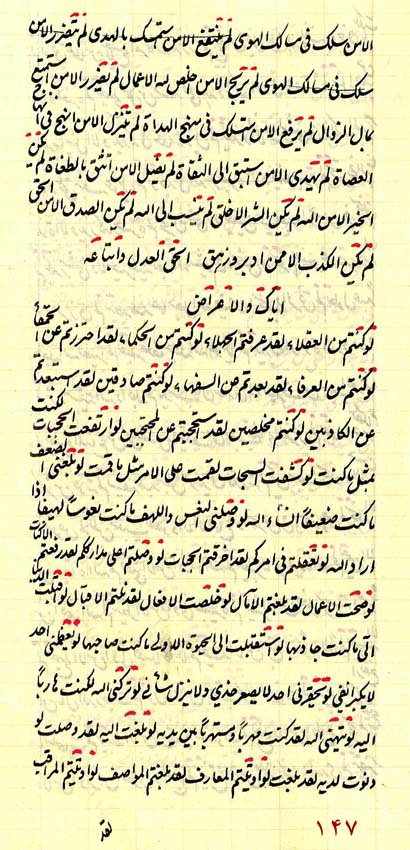 الامن سلك فی مسالک الهوی لم ینتفع الامن استمسک بالهدی لم یتضرر الامن
سلک فی مسالک الهوی لم یربح الامن اخلص له الاعمال لم یتضرر الامن استمتع
بمال الزوال لم یرفع الامن استسلک فی منهج الهداة لم یتنزل الامن انهج فی
العصاة لم یهتدی الامن استبق الی التقاة لم یضل الامن اتثق بالطغاة لم یکن
الخیر الامن الله لم یکن الشر الا خلق لم ینسب الی الله لم یکن الصدق الامن الحق
لم یکن الکذب الا ممن ادبر وزهق الحق العدل واتباعه
ایاک والاعراض
لوکنتم من العقلاء لقد عرفتم الجهلاء لوکنتم من الحکماء لقد احترزتم عن الحمقاء
لوکنتم من العرفاء لقد بعدتم عن السفهاء لوکنتم صادقین لقد استبعدتم
عن الکاذبین لوکنتم مخلصین لقد ستحجبتم عن المحتجبین لو ارتفعت الحجبات لکنت
بمثل ما کنت لو کشفت السبحات لقمت علی الامر مثل ما قمت لو بلغنی الضعف
ما کنت ضعیفاً انشاء الله لو وصلنی النفس واللهف ما کنت لغوساً لهیفاً اذا
اراد الله لو تعقلتم فی امرکم لقد اخرقتم الحجبات لو وصلتم اعلی مدارککم لقد
لو ضحت الاعمال لقد بلغتم الآمال لو خلصت الافعال لقد نلتم الاقبال لو قبلت
الی ما کنت جاذبها لو استقبلت الی الحیوة الاولی ما کنت صاحبها لو تعظمنی احد
لا یکبر انفی لو تحقرنی احد لا یصعر خدی ولا ینزل شانی لو ترکنی الله لکنت هارباً
الیه لو تنهنی الله لقد کنت مهرباً ومستهرباً بین یدیه لو بلغت الیه لقد وصلت لو
دنوت لدیه لقد بلغت لو اوتیتم المعارف لقد بلغتم المواصف لو اوتیتم المراقب
لقد
۱۴۷